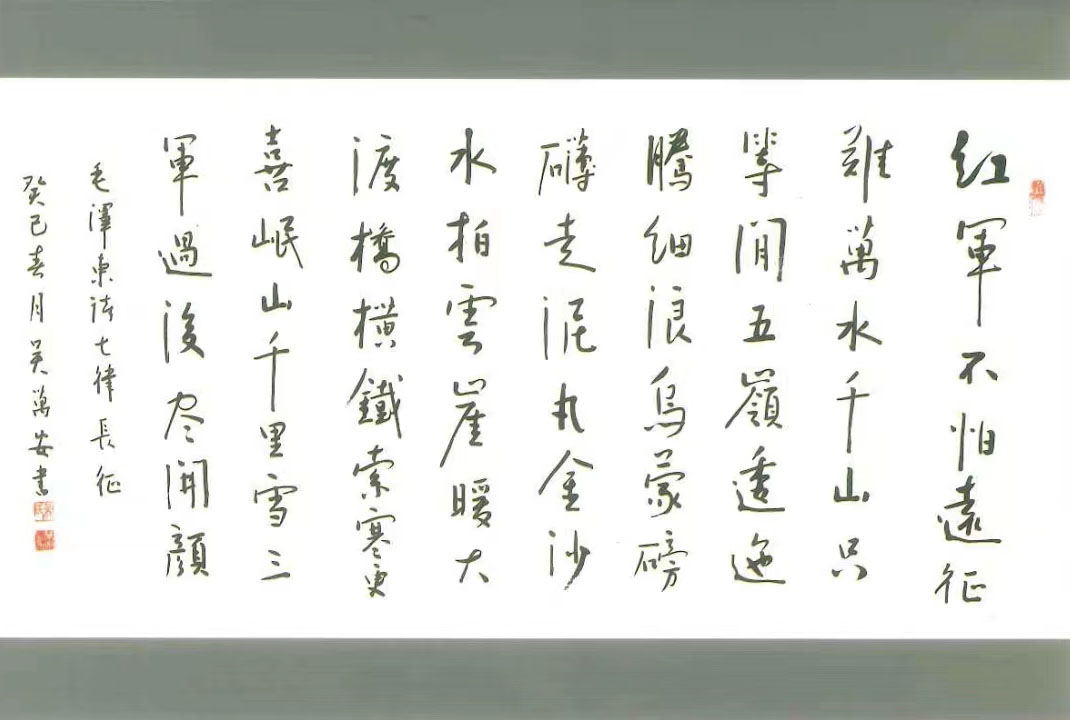 红軍不怕遠征
難萬水千山只
等閒五嶺逶迤
騰細浪烏蒙磅
礴走泥丸金沙
水拍雲崖暖大
渡橋横鐵索寒更
喜岷山千里雪三
軍過後尽開顔
毛澤東詩七律長征
癸巳春月吴萬安書